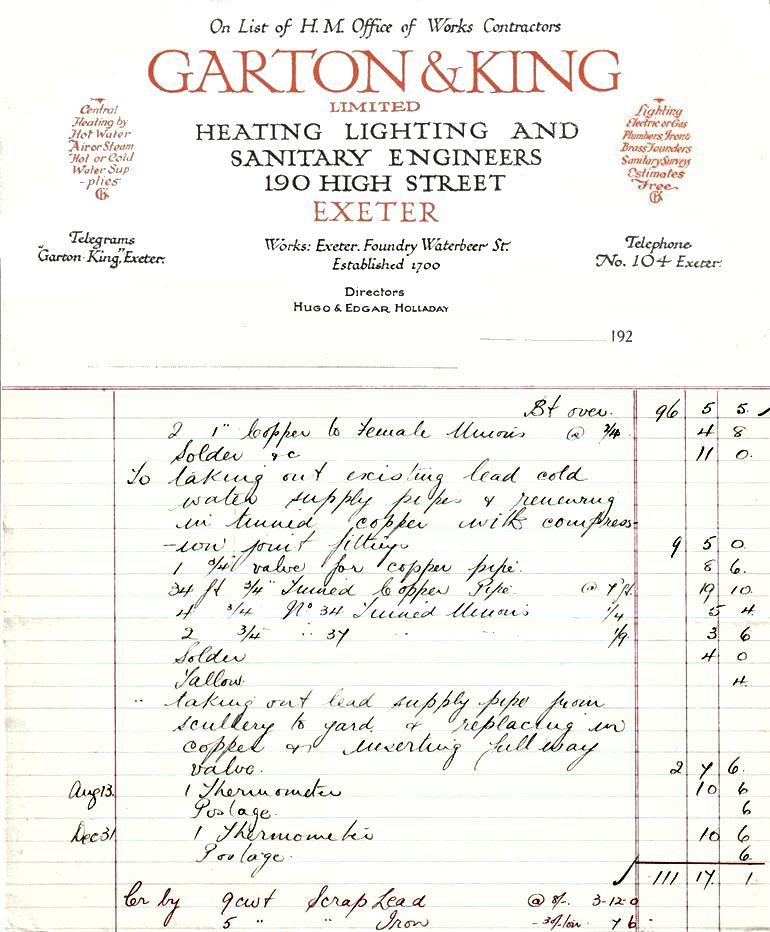 On List of H. M. Office of Works Contractors
GARTON & KING
LIMITED
HEATING LIGHTING AND
SANITARY ENGINEERS
190 HIGH STREET
EXETER
Central
Heating by
Hot Water
Air or Steam
Hot or Cold
Water Sup-
-plies
GK
Lighting
Electric or Gas
Plumbers, Iron &
Brass Founders
Sanitary Surveys
Estimates
Free
GK
Telegrams
"Garton King," Exeter.
Works: Exeter. Foundry Waterbeer St.
Established 1700
Telephone
No. 104 Exeter.
Directors
HUGO & EDGAR HOLLADAY
192
Bt over. 96 5 5
2 1" Copper to Female Unions @ 2/4 4 8
Solder &c 11 0.
To taking out existing lead cold
water supply pipes & renewing
in tinned copper with compress-
-ion joint fittings 9 5 0.
1 3/4" valve for copper pipe. 8 6.
34 ft 3/4" Tinned Copper Pipe. @ 7" ft. 19 10
4 3/4 No 34 Tinned Unions 1/4 5 4
2 3/4 " 37 " " 1/9 3 6
Solder 4 0
Tallow 4.
" taking out lead supply pipe from
scullery to yard & replacing in
copper & inserting full way
valve. 2 7 6.
Aug 13. 1 Thermometer 10 6
Postage. 6
Dec 31 1 Thermometer 10 6
Postage. 6.
111 17. 1
Cr by 9 cwt Scrap Lead @ 8/-. 3-12-0
5 " " Iron 30/ton. 7 6